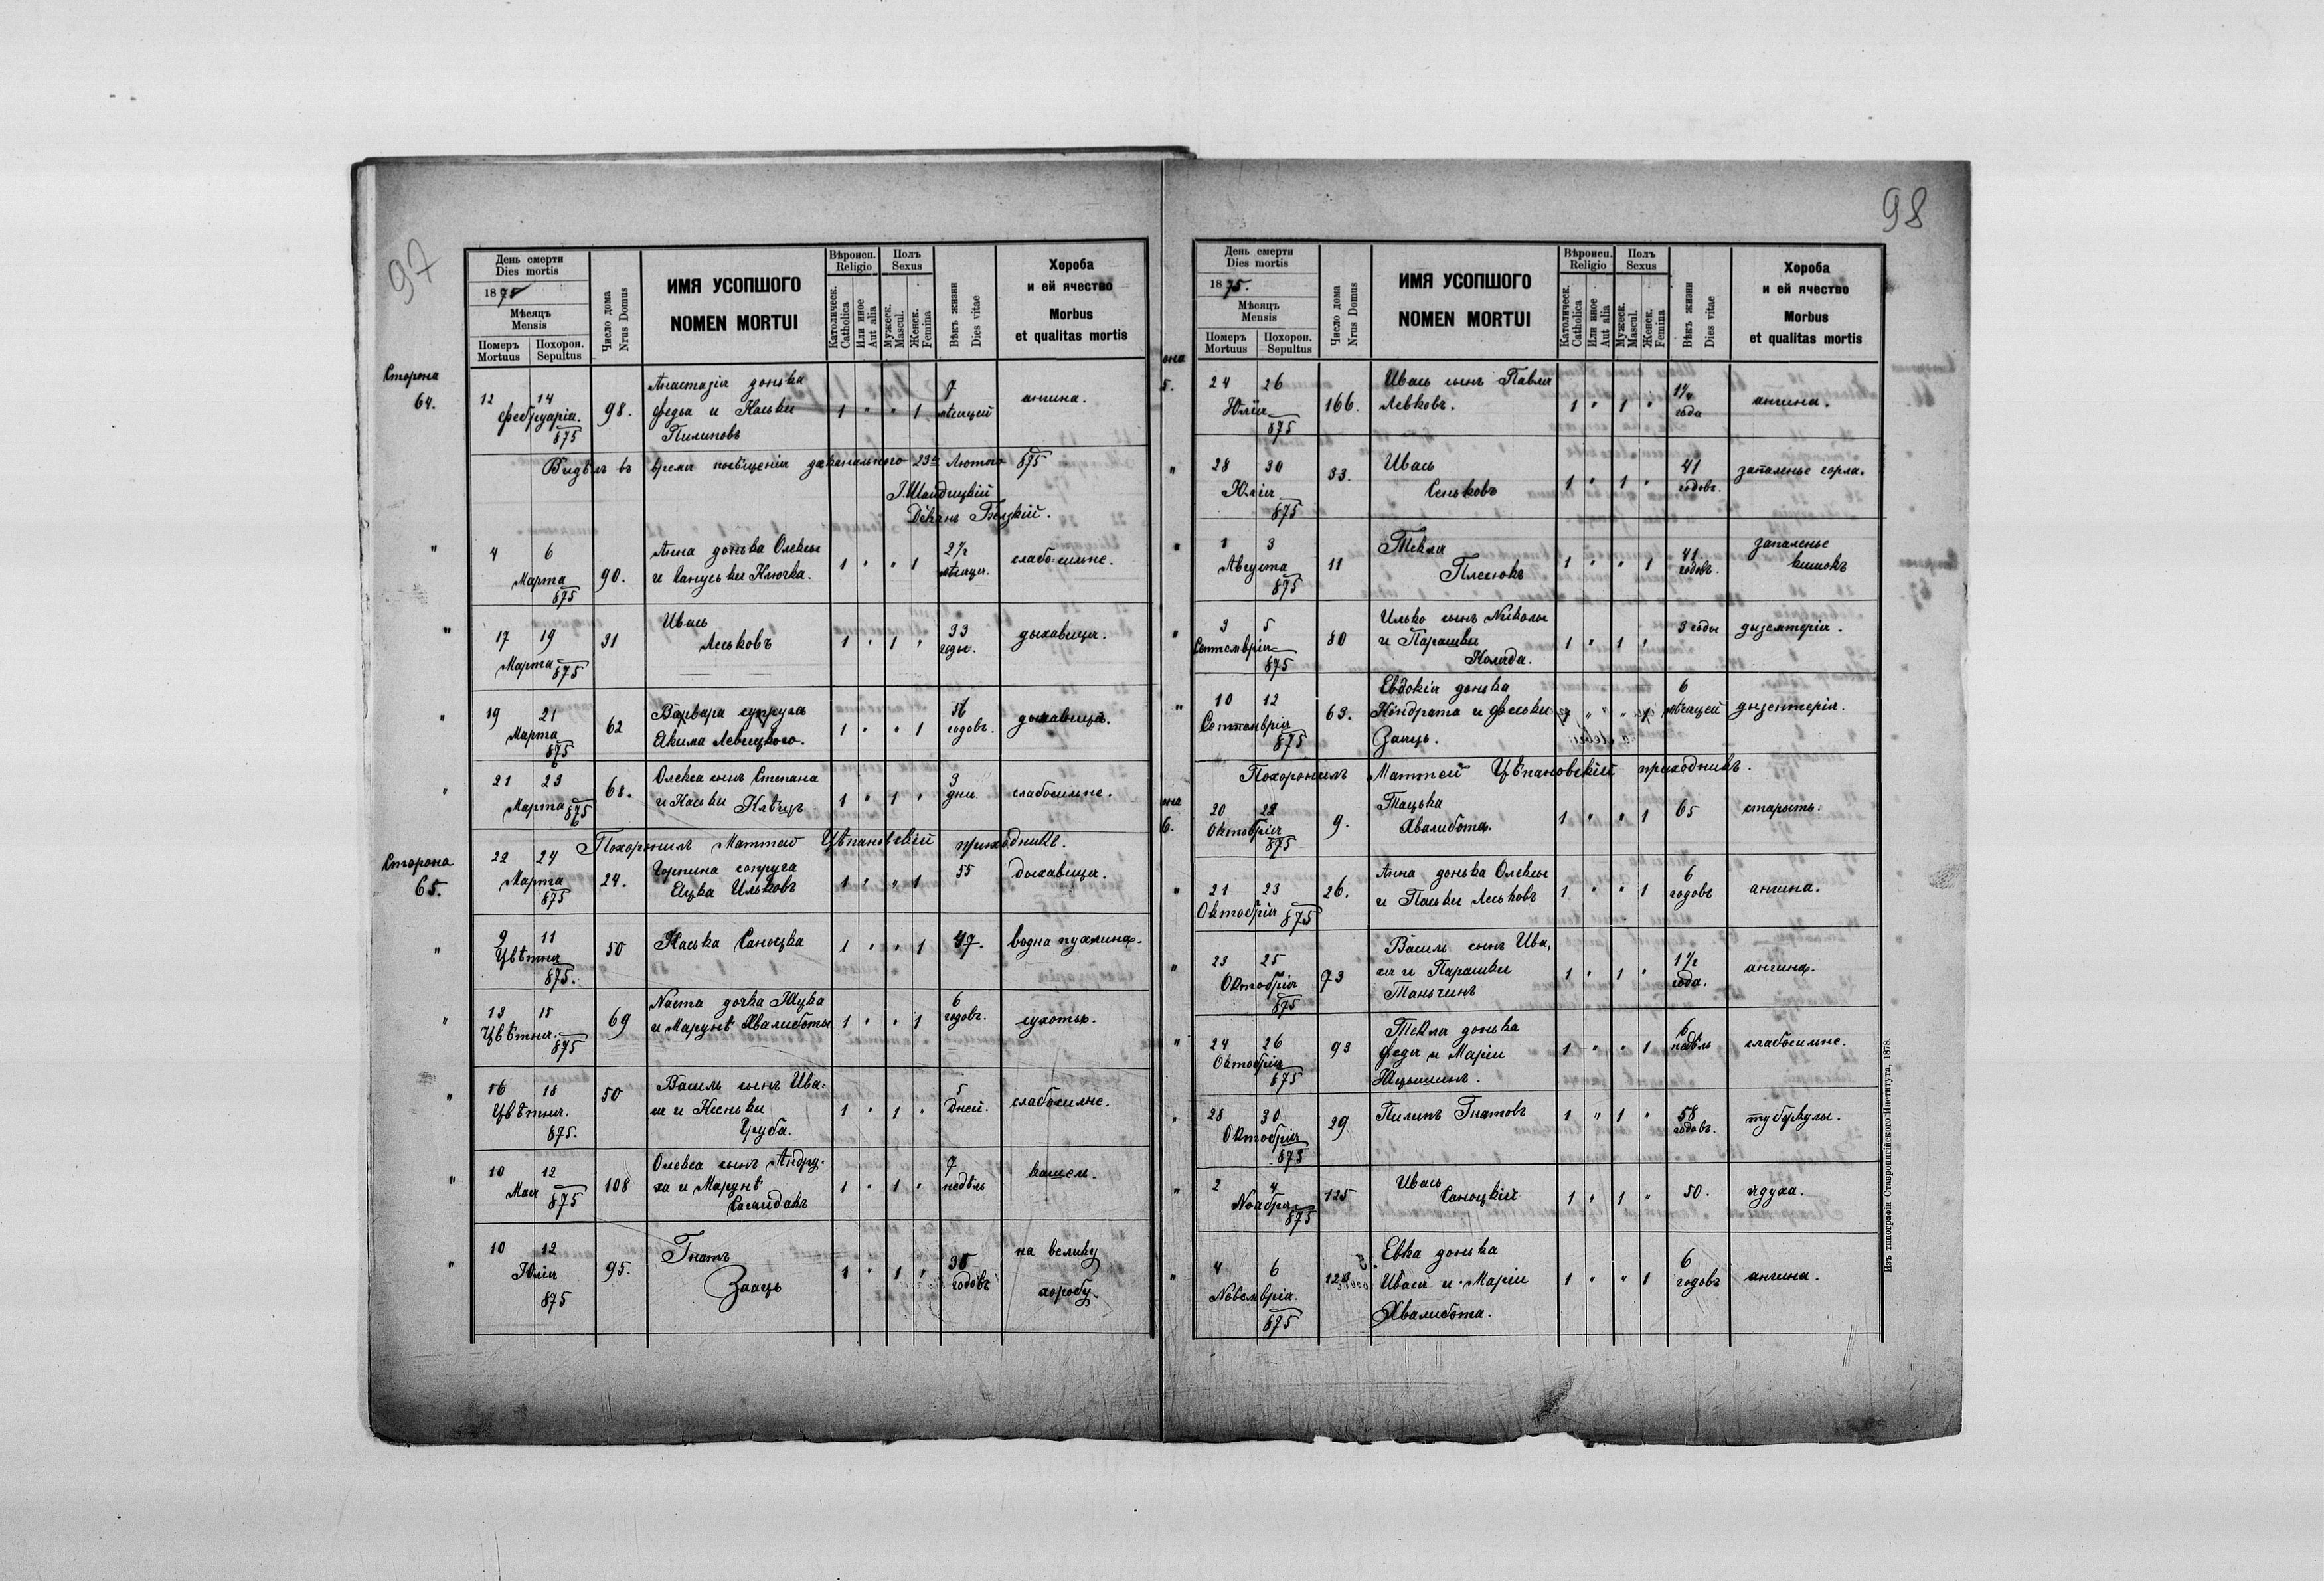 97
День смерти
Dies mortis
1875
Мѣсяцъ
Mensis
Померъ Похорон.
Mortuus Sepultus
Число дома
Nrus Domus
ИМЯ УСОПШОГО
NOMEN MORTUI
Вѣроисп.
Religio
Католическ.
Catholica
Или иное
Aut alia
Полъ
Sexus
Мужеск.
Mascul.
Женск.
Femina
Вѣкъ жизни
Dies vitae
Хороба
и ей ячество
Morbus
et qualitas mortis
Сторона
64.
12 14
Фебруарія.
875
98.
Анастазія донька
Федька и Каськи
Пилиповъ
1 " " 1
7
мѣсяцей
ангина.
Видѣлъ въ время посѣщенія деканального 23 Лютого 875
Деканъ Бѣлзкій.
" 4 6
Марта
875
90.
Анна донька Олексы
и Ключка.
1 " " 1
2 1/2
мѣсяця.
слабосильне.
" 17 19
Марта 875
31
Ивась
Леськовъ
1 " 1 "
33
годы.
дыхавиця.
" 19 21
Марта
875
62
Варвара супруга
Якима Левицкого.
1 " " 1
56
годовъ.
дыхавиця.
" 21 23
Марта 875
68.
Олекса сынъ Степана
и Каськи
1 " 1 "
3
дни
слабосильне.
Похоронилъ Маттей Цѣпановскій приходникъ.
Сторона
65.
22 24
Марта
875
24.
Горпина супруга
Яцка Ильковъ
1 " " 1
55
дыхавиця.
" 9 11
Цвѣтня
875.
50
Каська Саноцка
1 " " 1
47.
водна пухлина.
" 13 15
Цвѣтня.
875
69
Наста дочка Яцка
и Марунѣ Хвалиботы
1 " " 1
6
годовъ.
сухоты.
" 16 18
Цвѣтня.
875.
50
Василь сынъ Ива-
ся и Ксеньки
Цюба.
1 " 1 "
5
дней.
слабосилне.
" 10 12
Мая
875
108
Олекса сынъ Андру-
ха и Марунѣ
Сагайдакъ
1 " 1 "
7
недѣль
кашель.
" 10 12
Юлія
875
95.
Гнатъ
Заяць
1 " 1 "
годовъ
на велику
хоробу.
98
День смерти
Dies mortis
1875.
Мѣсяцъ
Mensis
Померъ Похорон.
Mortuus Sepultus
Число дома
Nrus Domus
ИМЯ УСОПШОГО
NOMEN MORTUI
Вѣроисп.
Religio
Католическ.
Catholica
Или иное
Aut alia
Полъ
Sexus
Мужеск.
Mascul.
Женск.
Femina
Вѣкъ жизни
Dies vitae
Хороба
и ей ячество
Morbus
et qualitas mortis
она
5.
24 26
Юлія
875
166.
Ивась сынъ Павла
Левковъ.
1 " 1 "
года
ангина.
" 28 30
Юлія
875
33.
Ивась
Сеньковъ
1 " 1 "
41
годовъ.
запаленье горла.
" 1 3
Августа
875
11
Текля
Плесюкъ
1 " " 1
41
годовъ.
запаленье
кишокъ
" 3 5
Септемврія
875
80
Илько сынъ Николы
и Парашки
Коляда.
1 " 1 "
3 годы
дызентерія.
" 10 12
Септемврія
875
63.
Евдокія донька
Кіндрата и Феськи
Заяць.
1 " " 1
6
мѣсяцей
дызентерія.
Похоронилъ Маттей Цѣпановскій приходникъ.
она
6.
20 22
Октобрія
875
9.
Тацька
Хвалибота.
1 " " 1
65
старость.
" 21 23
Октобрія 875
26.
Анна донька Олексы
и Паськи Леськовъ
1 " " 1
6
годовъ
ангина.
" 23 25
Октобрія
875
73
Василь сынъ Ива-
ся и Парашки
Танчинъ
1 " 1 "
1 1/2
года.
ангина.
" 24 26
Октобрія
875
93
Текля донька
Федя и Маріи
1 " " 1
6
недѣль
слабосильне.
" 28 30
Октобрія
875
29
Пилипъ Гнатовъ
1 " 1 "
58
годовъ.
туберкулы.
" 2 4
Ноября
875
125
Ивась
Саноцкій
1 " 1 "
50.
ядуха.
" 4 6
Новемврія.
875
Евка донька
Ивася и Маріи
Хвалибота.
1 " " 1
6
годовъ
ангина.
Изъ типографіи Ставропигійского Института, 1878.